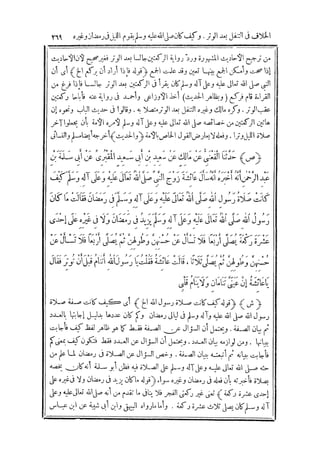 الخلاف فى التنفل بعد الوتر . وكيف كان صلى الله عليه وسلم يقوم الليل فى رمضان وغيره ٢٦٩
من ترجيح الأحاديث المشهورة ورد رواية الركعتين جالسا بعد الوتر فغير صحيح لأن الأحاديث
إذا صحت وأمكن الجمع بينها تعين وقد علمت الجمع ﴿قوله فإذا أراد أن يركع الخ﴾ أى أن
النبى صلى الله تعالى عليه وعلى آله وسلم كان يقرأ فى الركعتين بعد الوتر جالسا فإذا فرغ من
القراءة قام فركع ﴿وبظاهر الحديث﴾ أخذ الأوزاعى وأحمد فى رواية عنه فأباحا ركعتين
عقب الوتر. وكره مالك وغيره التنفل بعد الوتر متصلا به . وقالوا فى حديث الباب ونحوه إن
هاتين الركعتين من خصائصه صلى الله تعالى عليه وعلى آله وسلم لأمره الأمة بأن يجعلوا آخر
صلاة الليل وترا . وفعله لا يعارض القول الخاص بالأمة ﴿والحديث﴾ أخرجه أيضا مسلم والنسائى
﴿ص﴾ حَدَّثَنَا الْقَعْنَبِىُّ عَنْ مَالِكٍ عَنْ سَعِيدِ بْنِ أَبِى سَعِيدٍ الْمَقْبُرِىِّ عَنْ أَبِى سَلَمَةَ بْنِ
عَبْدِ الرَّحْمَنِ أَنَّهُ أَخْبَرَهُ أَنَّهُ سَأَلَ عَائِشَةَ زَوْجَ النَّبِىِّ صَلَّى اللهُ تَعَالَى عَلَيْهِ وَعَلَى آلِهِ وَسَلَّمَ كَيْفَ
كَانَتْ صَلَاةُ رَسُولِ اللهِ صَلَّى اللهُ تَعَالَى عَلَيْهِ وَعَلَى آلِهِ وَسَلَّمَ فِى رَمَضَانَ فَقَالَتْ مَا كَانَ
رَسُولُ اللهِ صَلَّى اللهُ تَعَالَى عَلَيْهِ وَعَلَى آلِهِ وَسَلَّمَ يَزِيدُ فِى رَمَضَانَ وَلَا فِى غَيْرِهِ عَلَى إِحْدَى
عَشْرَةَ رَكْعَةً يُصَلِّى أَرْبَعًا فَلَا تَسْأَلْ عَنْ حُسْنِهِنَّ وَطُولِهِنَّ ثُمَّ يُصَلِّى أَرْبَعًا فَلَا تَسْأَلْ عَنْ
حُسْنِهِنَّ وَطُولِهِنَّ ثُمَّ يُصَلِّى ثَلَاثًا ، قَالَتْ عَائِشَةُ فَقُلْتُ يَا رَسُولَ اللهِ أَتَنَامُ قَبْلَ أَنْ تُوتِرَ فَقَالَ
يَا عَائِشَةُ إِنَّ عَيْنَىَّ تَنَامَانِ وَلَا يَنَامُ قَلْبِى
﴿ش﴾ ﴿قوله كيف كانت صلاة رسول الله الخ﴾ أى كيف كانت صفة صلاة
رسول الله صلى الله عليه وآله وسلم فى ليالى رمضان وكم كان عددها بدليل إجابتها بالعدد
ثم بيان الصفة . ويحتمل أن السؤال عن الصفة فقط كما هو ظاهر لفظ كيف فأجابت
ببيانها . ومن لوازمه بيان العدد . ويحتمل أن السؤال عن العدد فقط فتكون كيف بمعنى كم
فأجابت ببيانه ثم أتبعته ببيان الصفة . وخص السؤال عن الصلاة فى رمضان لما علم من
حثه صلى الله تعالى عليه وعلى آله وسلم على الصلاة فيه فظن أبو سلمة أنه كان يخصه
بصلاة فأخبرته بأن فعله فى رمضان وغيره سواء ﴿قوله ما كان يزيد فى رمضان ولا فى غيره على
إحدى عشرة ركعة﴾ تعنى غير ركعتى الفجر فلا ينافى ما تقدم من أنه صلى الله تعالى عليه وعلى
آله وسلم كان يصلى ثلاث عشرة ركعة . وأما ما رواه البيهقى وابن أبى شيبة عن ابن عباس